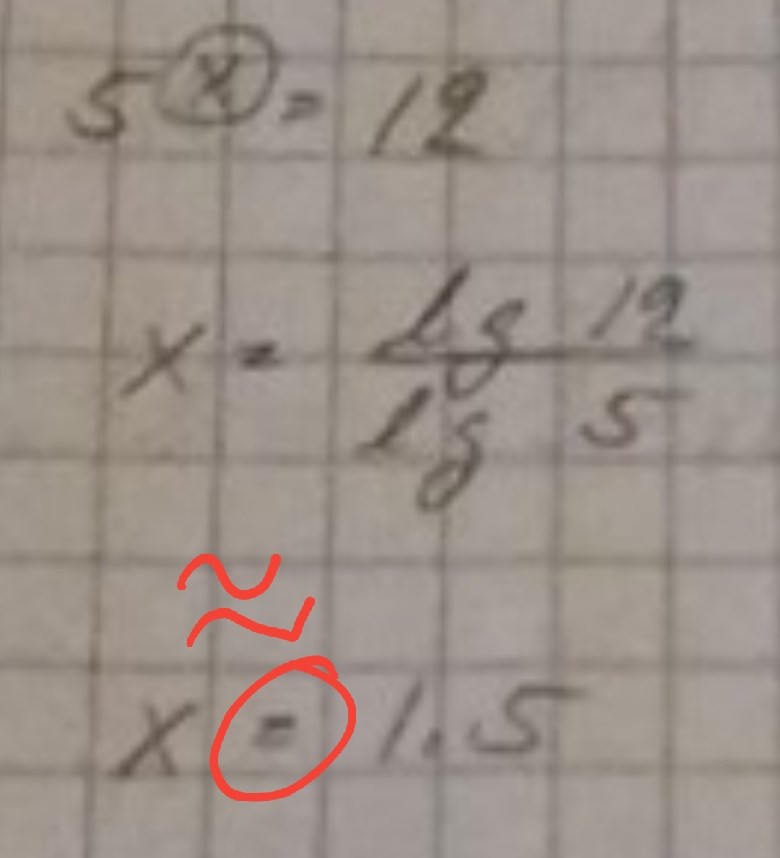 5^x = 12
x = lg 12 / lg 5
≈
x = 1.5